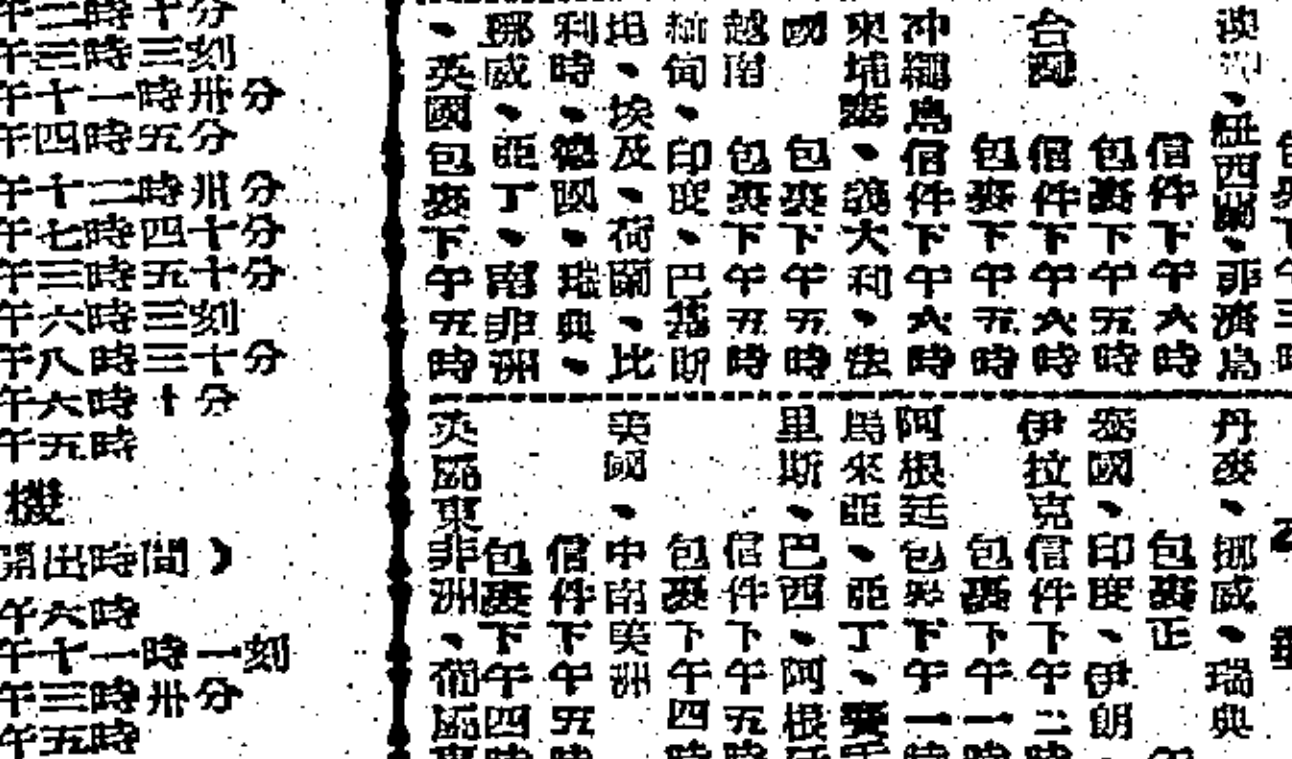 午二時十分
午三時三刻
午十一時卅分
午四時五分
午十二時卅分
午七時四十分
午三時五十分
午六時三刻
午八時三十分
午六時十分
午五時
機
開出時間）
午六時
午十一時一刻
午三時卅分
午五時
澳洲、紐西蘭、非濟島
信件下午六時
包裹下午五時
台灣 信件下午六時
包裹下午五時
冲繩島信件下午六時
東埔寨、義大利、法
國 包裹下午五時
越南 包裹下午五時
緬甸、印度、巴基斯
坦、埃及、荷蘭、比
利時、德國、瑞典、
挪威、亞丁、南非洲
、英國包裹下午五時
丹麥、挪威、瑞典
包裹正
泰國、印度、伊朗
伊拉克信件下午二時
包裹下午一時
阿根廷包裹下午一時
馬來亞、亞丁、
里斯、巴西、阿根廷
信件下午五時
包裹下午四時
美國、中南美洲
信件下午五時
包裹下午四時
英屬東非洲、葡屬東